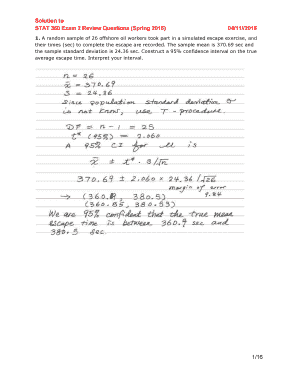 Solution to
STAT 350 Exam 2 Review Questions (Spring 2015) 04/11/2015
1. A random sample of 26 offshore oil workers took part in a simulated escape exercise, and
their times (sec) to complete the escape are recorded. The sample mean is 370.69 sec and
the sample standard deviation is 24.36 sec. Construct a 95% confidence interval on the true
average escape time. Interpret your interval.
n = 26
x̄ = 370.69
S = 24.36
Since population standard deviation σ
is not know, use T-procedure.
DF = n - 1 = 25
t* (95%) = 2.060
A 95% CI for μ is
x̄ ± t* · s/√n
370.69 ± 2.060 × 24.36/√26
margin of error
9.84
→ (360.9, 380.5)
(360.85, 380.53)
We are 95% confident that the true mean
escape time is between 360.9 sec and
380.5 sec.
1/16